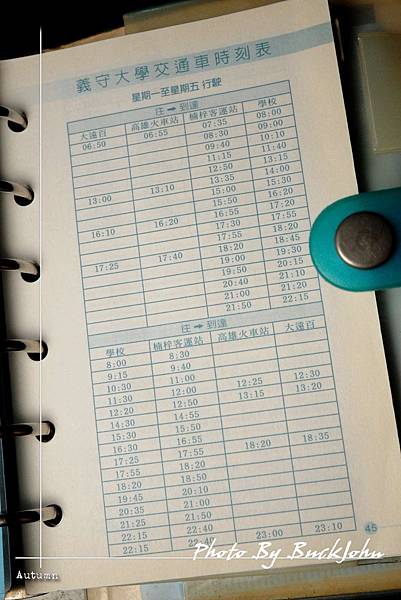 義守大學交通車時刻表
星期一至星期五 行駛
往 ➡ 到達
大遠百 高雄火車站 楠梓客運站 學校
06:50 06:55 07:35 08:00
08:30 09:00
09:40 10:10
11:15 11:40
12:50 13:15
13:00 13:10 13:35 14:00
15:00 15:30
15:50 16:20
16:10 16:20 16:55 17:20
17:30 17:55
17:55 18:20
17:25 17:40 18:20 18:45
19:00 19:30
19:50 20:15
20:40 21:10
21:00 21:20
21:50 22:15
往 ➡ 到達
學校 楠梓客運站 高雄火車站 大遠百
8:00 8:30
9:15 9:40
10:30 11:00
11:30 12:00 12:25 12:30
12:20 12:50 13:15 13:20
14:30 14:55
15:30 15:50
16:30 16:55
17:25 17:55 18:20 18:35
17:55 18:20
18:20 18:50
19:45 20:10
20:35 21:00
21:25 21:50
22:15 22:40
22:15 22:40 23:00 23:10
45
Photo By BuckJohn
Autumn